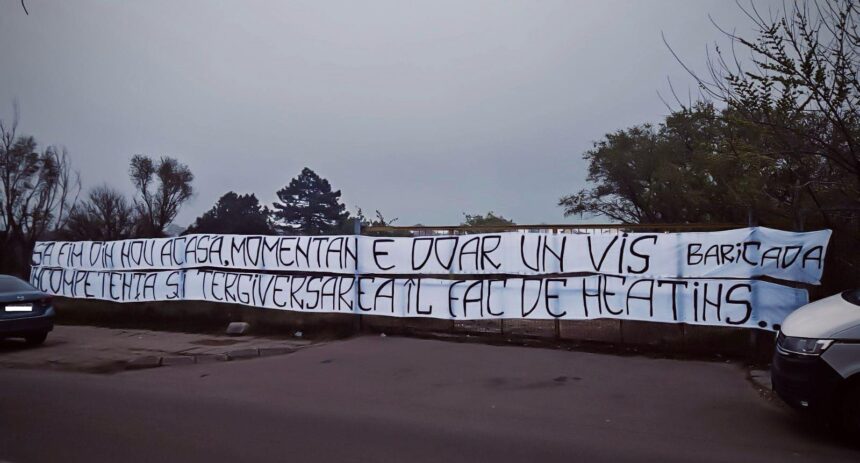 SA FIM DIN NOU ACASA, MOMENTAN E DOAR UN VIS BARICADA
INCOMPETENTA SI TERGIVERSAREA ÎL FAC DE NEATINS...